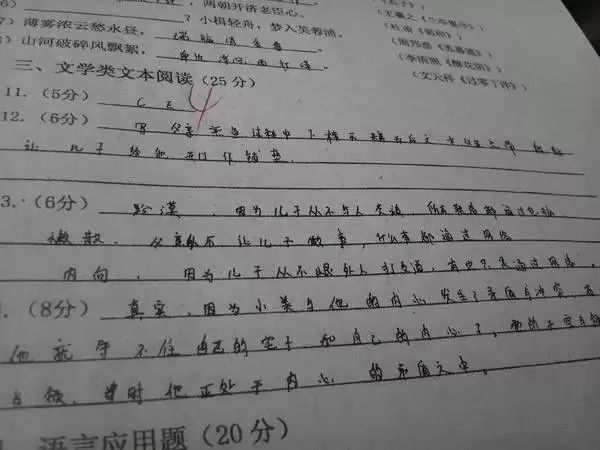 6)              ？两朝开济老臣心。
？小楫轻舟，梦入芙蓉浦。
7）薄雾浓云愁永昼，瑞脑消金兽
8）山河破碎风飘絮，身世浮沉雨打萍。
（王羲之《兰亭集序》）
（杜甫《蜀相》）
（周邦彦《苏幕遮》）
（李清照《醉花阴》）
（文天祥《过零丁洋》）
三、文学类文本阅读（25分）
11.（5分） C E
12.（6分） 写 父亲 过程中
让 儿子 给他 开门 作铺垫.
3.（6分） 冷漠. 因为儿子从不与人交谈，所有联系都通过电脑
懒散. 父亲从不让儿子做事，什么事都通过网络
内向. 因为儿子从不跟外人打交道，有也只是通过网络.
（8分） 真实.因为小美与他的内心发生了矛盾与冲突，
他就守不住自己的空子和自己的内心了，
占领. 当时他正处于内心的矛盾之中。
语言应用题（20分）